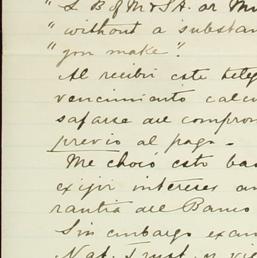 " L B of M & SA. or
" without a substan
" you make".
Al recibir este tele
vencimiento calcu
safarse del compro
previo al pago.
Me choco esto ba
exijir intereses an
rantia del Banco
Sin embargo exa
Nat. Trust. or vi